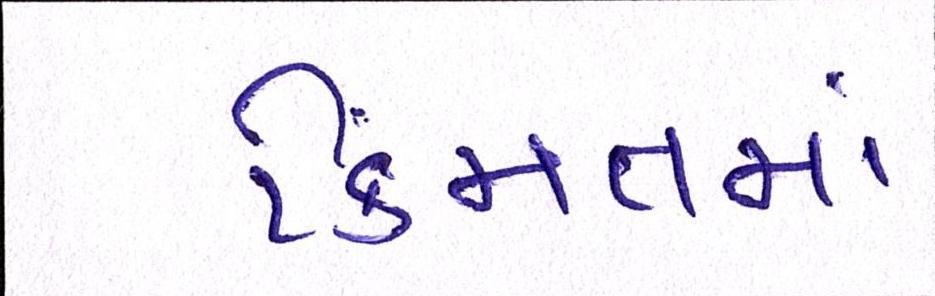 કિંમતમાં